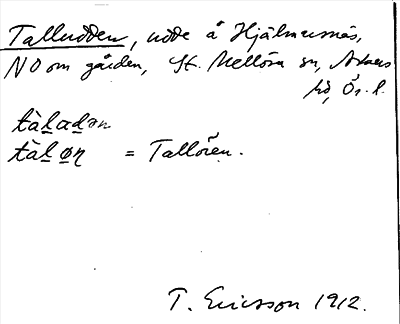 Talludden, udde å Hjälmarsnäs,
NO om gården, St. Mellösa sn, Askers
hd, Ör. l.
tàlαdən
tàløn = Tallören.
T. Ericsson 1912.